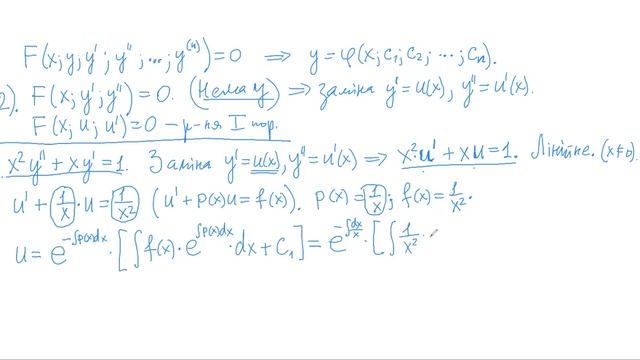 F(x; y; y'; y''; ...; y⁽ⁿ⁾) = 0 ⇒ y = φ(x; c₁; c₂; ...; cₙ).
2). F(x; y'; y'') = 0. (Нема y) ⇒ заміна y' = u(x), y'' = u'(x).
F(x; u; u') = 0 – р-ня I пор.
x²y'' + xy' = 1. Заміна y' = u(x), y'' = u'(x) ⇒ x²·u' + xu = 1. Лінійне. (x≠0).
u' + (1/x)·u = (1/x²) (u' + p(x)u = f(x)). p(x) = 1/x; f(x) = 1/x².
u = e^(-∫p(x)dx) · [∫f(x)·e^(∫p(x)dx)·dx + C₁] = e^(-∫dx/x) · [∫1/x² ·